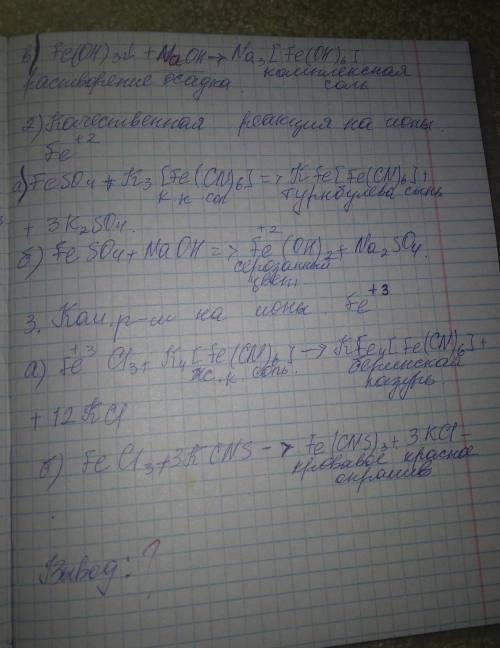 в) Fe(OH)3↓ + NaOH → Na3[Fe(OH)6]
растворение осадка комплексная соль
2) Качественная реакция на ионы
Fe+2
а) FeSO4 + K3[Fe(CN)6] => KFe[Fe(CN)6] +
к к сол турнбулева синь
+ 3K2SO4.
б) FeSO4 + NaOH => Fe+2(OH)2 + Na2SO4.
цвет
3. Кач. р-и на ионы Fe+3
а) Fe+3Cl3 + K4[Fe(CN)6] → KFe4[Fe(CN)6] +
ж. к. соль. берлинская лазурь
+ 12KCl
б) FeCl3 + 3KCNS -> Fe(CNS)3 + 3KCl -
кровавое красное окрашив
Вывод: ?